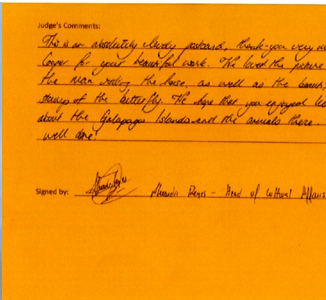 Judge's Comments:
This is an absolutely lovely postcard, thank-you very
for your beautiful work. We loved the picture
the man riding the horse, as well as the
of the butterfly. We hope that you enjoyed
about the Galapagos Islands and the animals there.
well done!
Signed by: - Head of Cultural Affairs